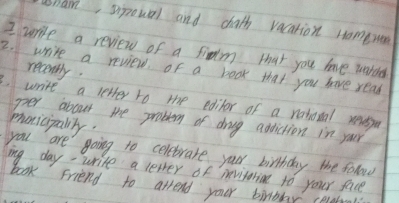 and chath vacation Home
1. write a review of a film that you have watched
2. write a review of a book that you have read
recently.
3. write a letter to the editor of a national
about the problem of drug addiction in your
municipality.
you are going to celebrate your birthday the follow
ing day - write a letter of invitation to your face
book Friend to attend your birthday